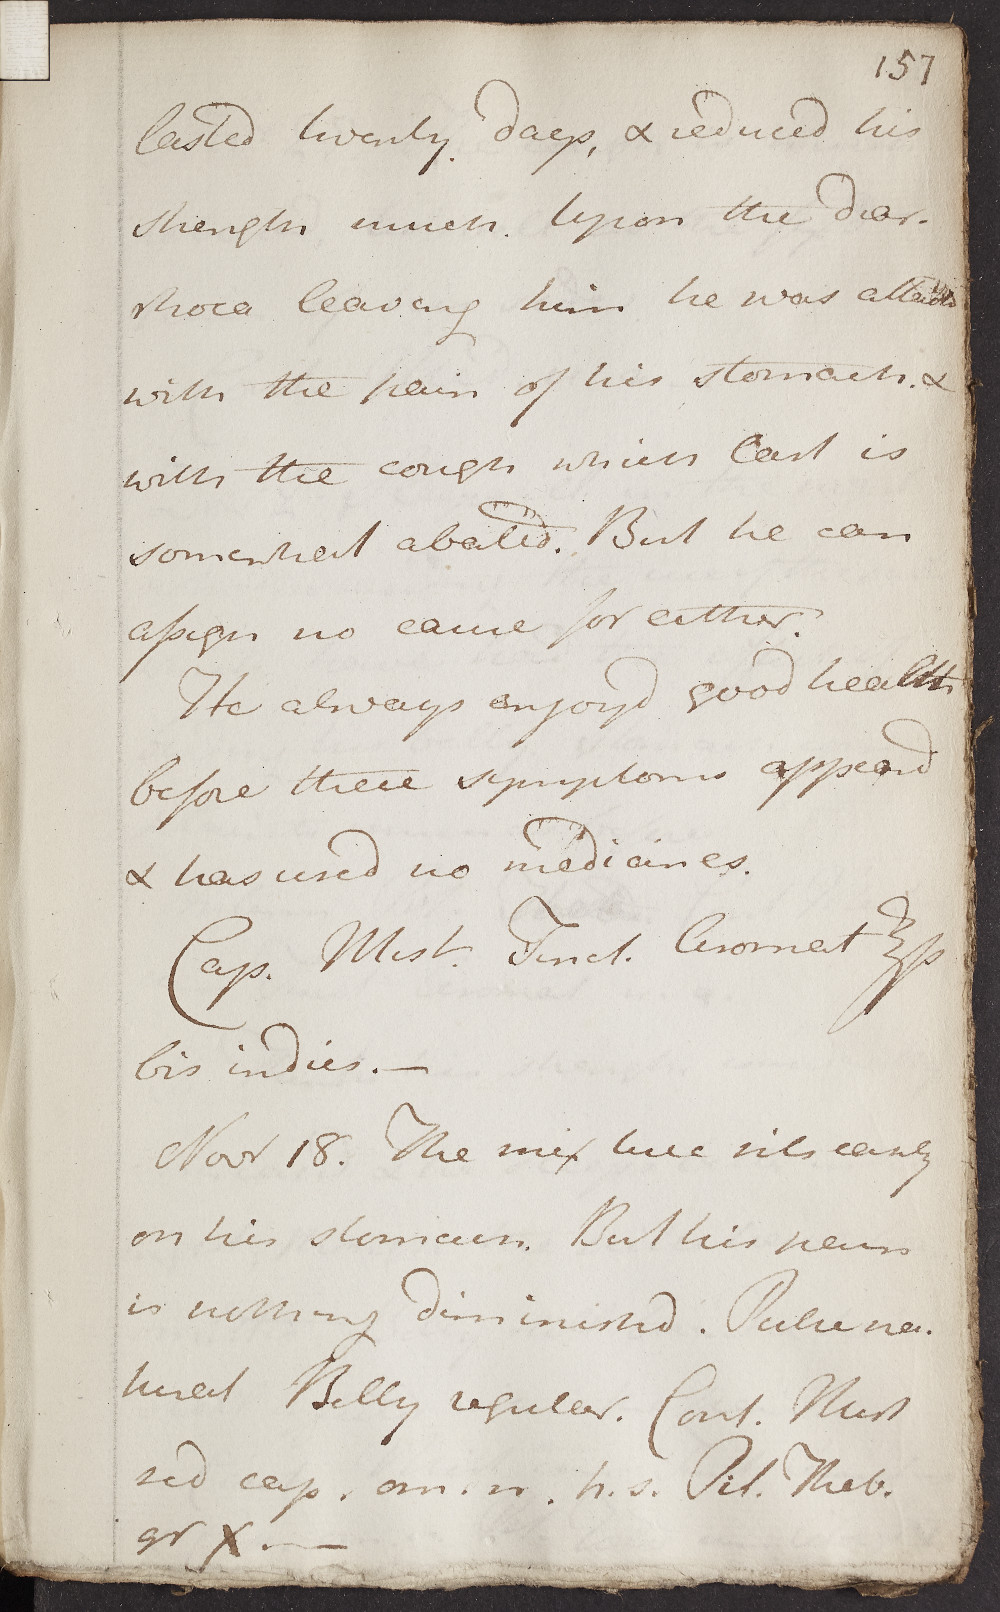 157
lasted twenty days, & reduced his
strength much. Upon the diar-
rhoea leaving him he was attackd
with the pain of his stomach. &
with the cough which last is
somewhat abated. But he can
assign no cause for either.
He always enjoyd good health
before these symptoms appeard
& has used no medicines.
Cap. Mist. Tinct. Aromat ℥ss
bis indies. —
Novr 18. The mixture sits easily
on his stomach. But his pain
is nothing diminishd. Pulse na-
tural Belly regular. Cont. Mist
sed cap. om. n. h.s. Pil. Theb.
gr X. —